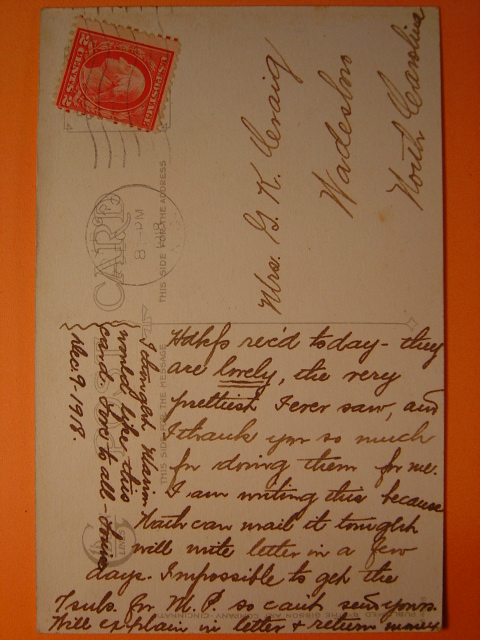 U.S. POSTAGE
2 CENTS 2
8 - PM
1918
POST CARD
THIS SIDE FOR THE ADDRESS
THIS SIDE FOR THE MESSAGE
Mrs. G. K. Craig
Wadesboro
North Carolina
Hdkfs rec'd today - they
are lovely, the very
prettiest I ever saw, and
I thank you so much
for doing them for me.
I am writing this because
Kath can mail it tonight
will write letter in a few
days. Impossible to get the
1 sub. for M. P. so can't send yours.
Will explain in letter & return money
I thought
would like this
card. Love to all -
Dec. 9, 1918.
THE GIBSON ART COMPANY CINCINNATI